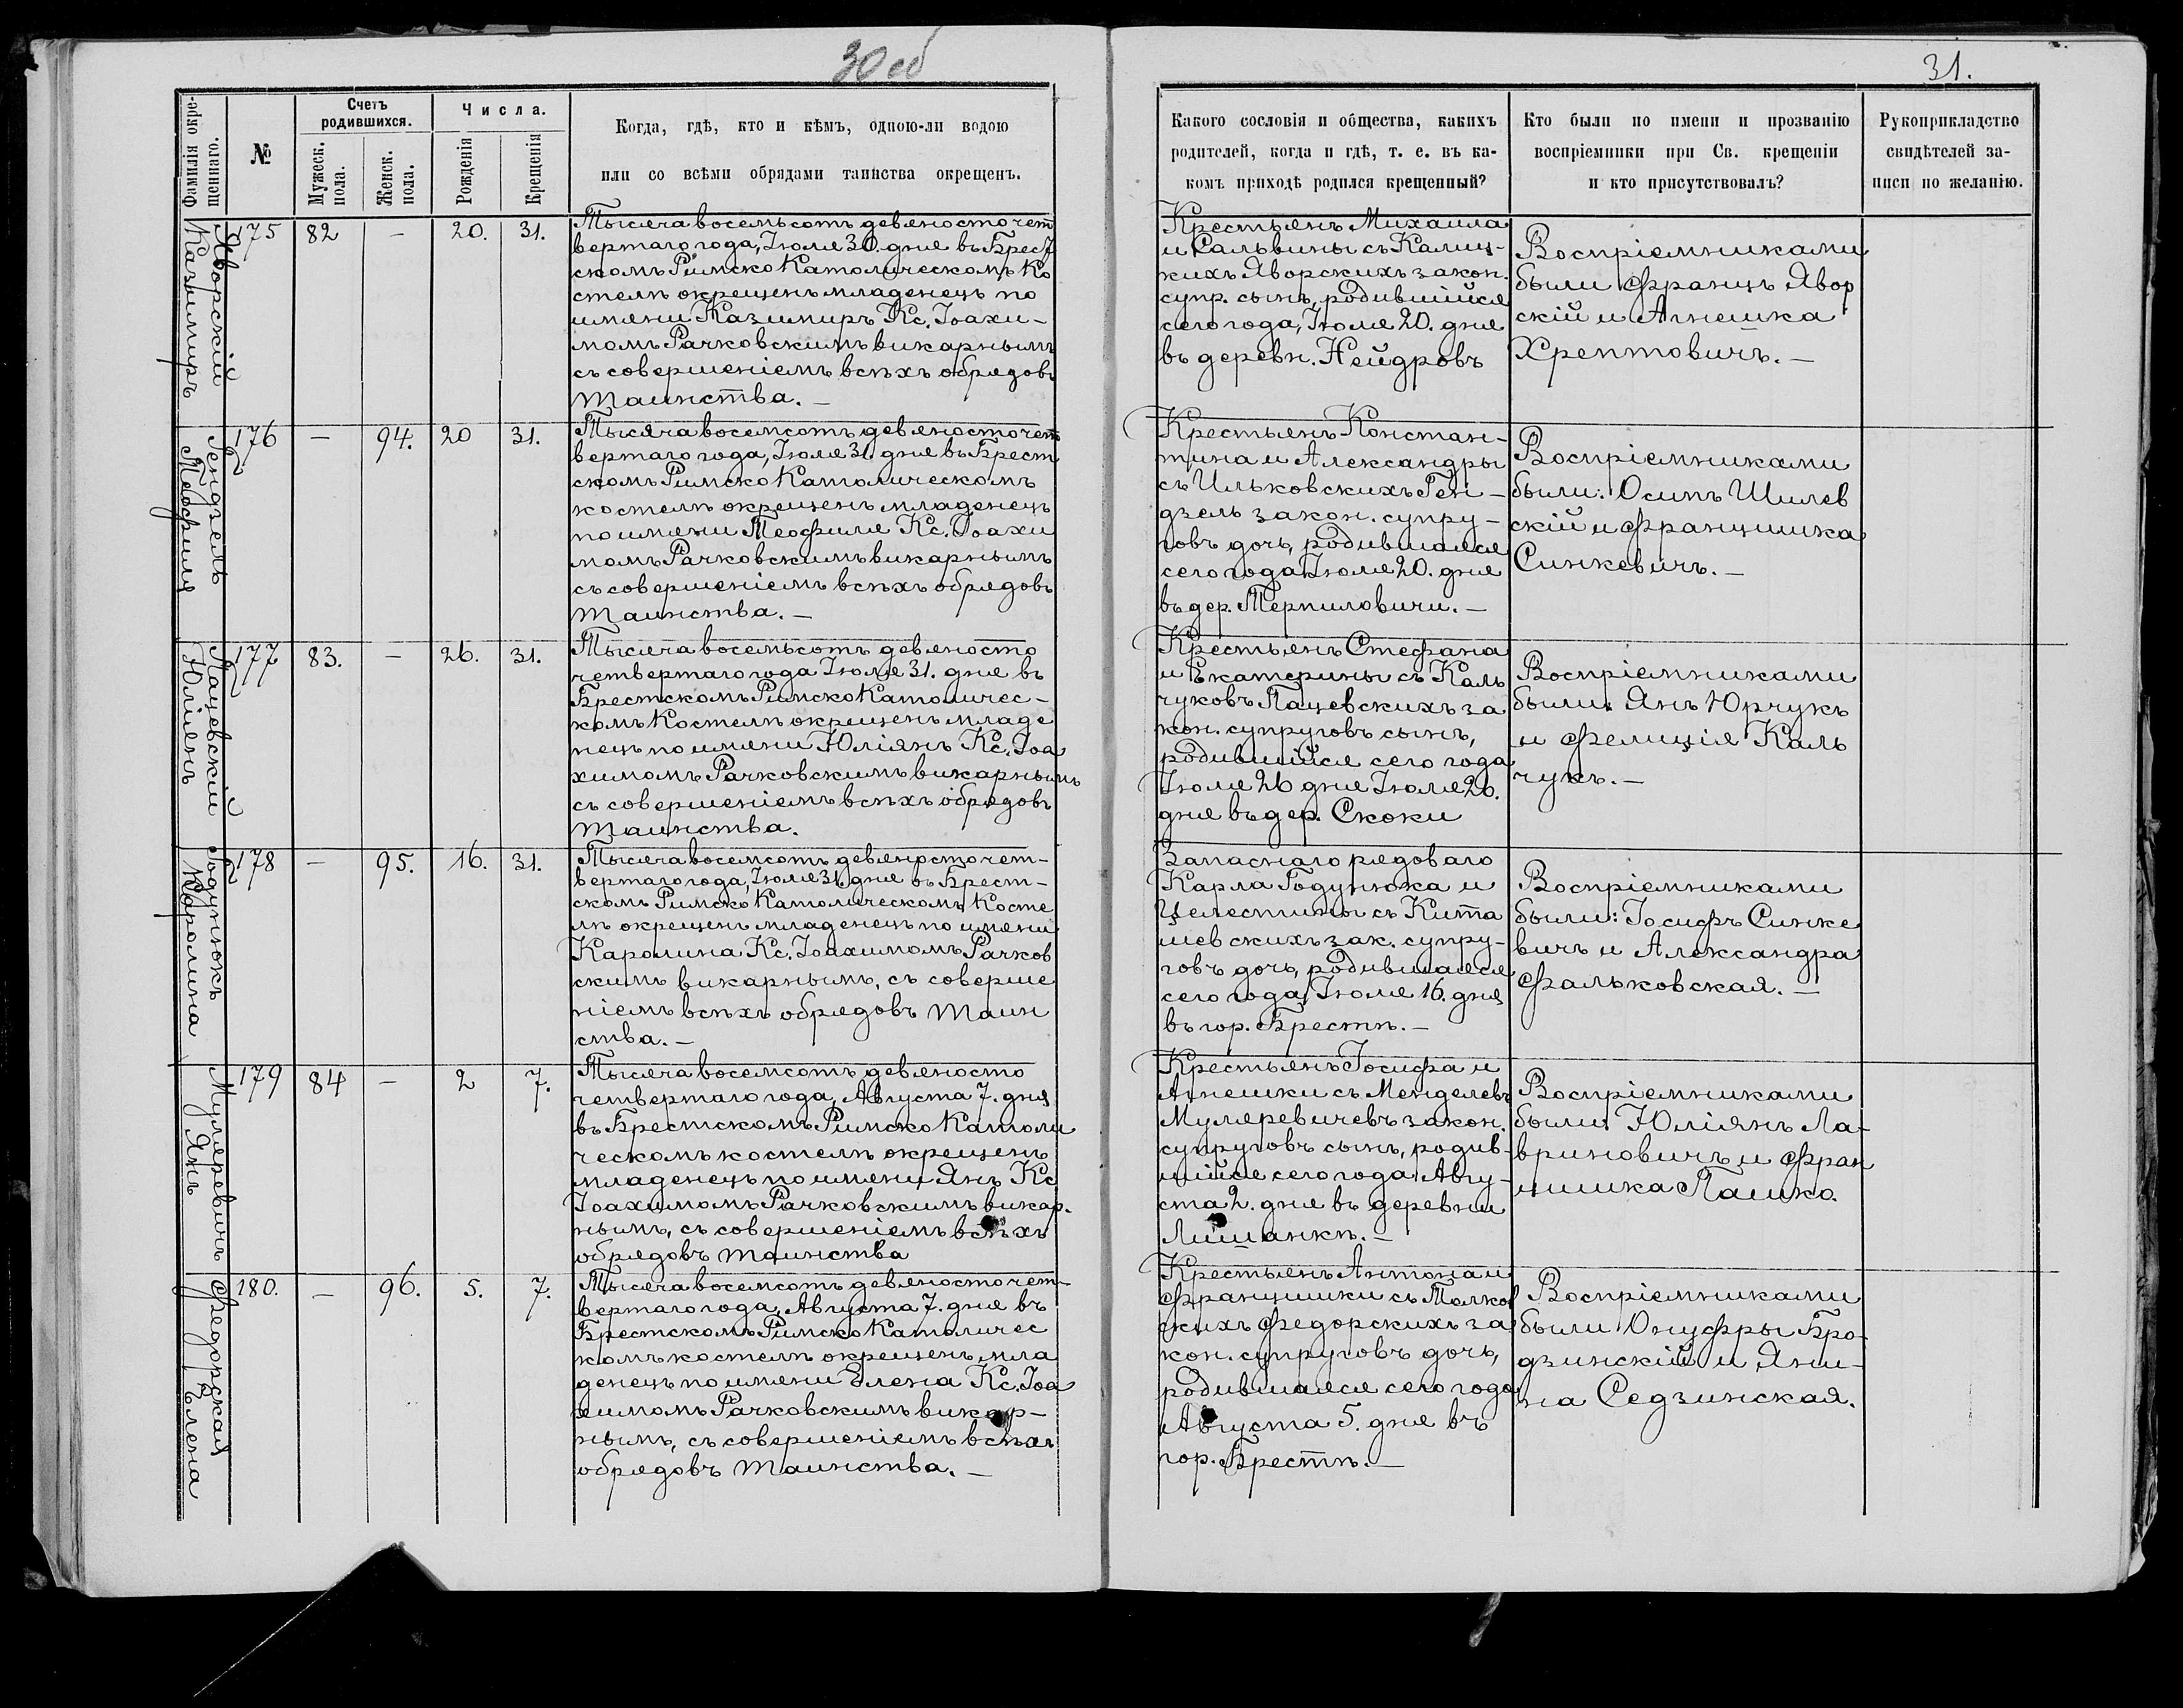 30 об
31.
Фамилія окре-
щеннаго.
№
Счетъ
родившихся.
Мужеск.
пола.
Женск.
пола.
Числа.
Рожденія
Крещенія
Когда, гдѣ, кто и кѣмъ, одною-ли водою
или со всѣми обрядами таинства окрещенъ.
Какого сословія и общества, какихъ
родителей, когда и гдѣ, т. е. въ ка-
комъ приходѣ родился крещенный?
Кто были по имени и прозванію
воспріемники при Св. крещеніи
и кто присутствовалъ?
Рукоприкладство
свидѣтелей за-
писи по желанію.
Яворскій
Казимиръ
175 82 – 20. 31.
Тысяча восемьсотъ девяносто чет
вертаго года, Іюля 30. дня въ Брест
скомъ Римско Католическомъ Ко
стелѣ окрещенъ младенецъ по
имени Казимиръ Кс. Іоахи-
момъ Рачковскимъ викарнымъ
съ совершеніемъ всѣхъ обрядовъ
Таинства. –
Крестьянъ Михаила
и Сальвины съ Калиц-
кихъ Яворскихъ закон.
супр. сынъ, родившійся
сего года, Іюля 20. дня
въ деревн. Нейдровъ
Воспріемниками
были Францъ Явор
скій и Агнешка
Хрептовичъ. –
Гендзель
Теофиля
176 – 94. 20 31.
Тысяча восемсотъ девяносто чет
вертаго года, Іюля 31. дня въ Брест
скомъ Римско Католическомъ
костелѣ окрещенъ младенецъ
по имени Теофиля Кс. Іоахи
момъ Рачковскимъ викарнымъ
съ совершеніемъ всѣхъ обрядовъ
Таинства. –
Крестьянъ Констан-
тина и Александры
съ Ильковскихъ Ген-
дзель закон. супру-
говъ дочь, родившаяся
сего года Іюля 20. дня
въ дер. Терпиловичи. –
Воспріемниками
были: Осипъ Шилев
скій и Францишка
Синкевичъ. –
Пацевскій
Юліянъ
177 83. – 26. 31.
Тысяча восемьсотъ девяносто
четвертаго года Іюля 31. дня въ
Брестскомъ Римско Католичес-
комъ Костелѣ окрещенъ младе
нецъ по имени Юліянъ Кс. Іоа
химомъ Рачковскимъ викарнымъ
съ совершеніемъ всѣхъ обрядовъ
Таинства.
Крестьянъ Стефана
и Екатерины съ Каль
чуковъ Пацевскихъ за
кон. супруговъ сынъ,
родившійся сего года
Іюля 26 дня Іюля 26.
дня въ дер. Скоки
Воспріемниками
были Янъ Юрчукъ
и Фелиція Каль
чукъ. –
Годунюкъ
Каролина
178 – 95. 16. 31.
Тысяча восемсотъ девяносто чет-
вертаго года, Іюля 31. дня въ Брест-
скомъ Римско Католическомъ Косте
лѣ окрещенъ младенецъ по имени
Каролина Кс. Іоахимомъ Рачков
скимъ викарнымъ, съ соверше
ніемъ всѣхъ обрядовъ Таин
ства. –
Запаснаго рядоваго
Карла Годунюка и
Целестины съ Кита
шевскихъ зак. супру-
говъ дочь, родившаяся
сего года, Іюля 16. дня
въ гор. Брестѣ. –
Воспріемниками
были: Іосифъ Синке
вичъ и Александра
Фальковская. –
Муляревичъ
Янъ
179 84 – 2 7.
Тысяча восемсотъ девяносто
четвертаго года, Августа 7. дня
въ Брестскомъ Римско Католи
ческомъ костелѣ окрещенъ
младенецъ по имени Янъ Кс.
Іоахимомъ Рачковскимъ викар.
нымъ, съ совершеніемъ всѣхъ
обрядовъ Таинства
Крестьянъ Іосифа и
Агнешки съ Менделевъ
Муляревичевъ закон.
супруговъ сынъ, родив-
шійся сего года Авгу-
ста 2. дня въ деревни
Лищанкѣ. –
Воспріемниками
были Юліянъ Ла-
вриновичъ и Фран
цишка Пашко.
Федорская
Елена
180. – 96. 5. 7.
Тысяча восемсотъ девяносто чет-
вертаго года, Августа 7. дня въ
Брестскомъ Римско Католичес
комъ костелѣ окрещенъ мла
денецъ по имени Елена Кс. Іоа
химомъ Рачковскимъ викар-
нымъ, съ совершеніемъ всѣхъ
обрядовъ Таинства. –
Крестьянъ Антона и
Францишки съ Толков
скихъ Федорскихъ за
кон. супруговъ дочь,
родившаяся сего года
Августа 5. дня въ
гор. Брестѣ. –
Воспріемниками
были Онуфры Бро-
дзинскій и Яни-
на Седзинская.